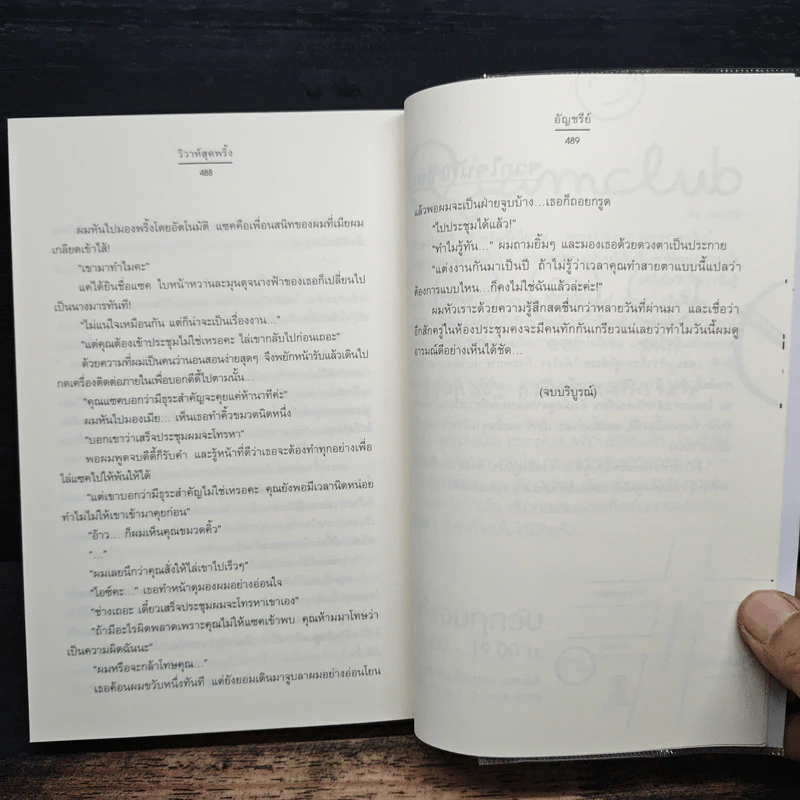 วิวาห์สุดพริ้ง
488
ผมหันไปมองพริ้งโดยอัตโนมัติ แซคคือเพื่อนสนิทของผมที่เมียผม
เกลียดเข้าไส้!
"เขามาทำไมคะ"
แค่ได้ยินชื่อแซค ใบหน้าหวานละมุนดุจนางฟ้าของเธอก็เปลี่ยนไป
เป็นนางมารทันที!
"ไม่แน่ใจเหมือนกัน แต่ก็น่าจะเป็นเรื่องงาน…"
"แต่คุณต้องเข้าประชุมไม่ใช่เหรอคะ ไล่เขากลับไปก่อนเถอะ"
ด้วยความที่ผมเป็นคนว่านอนสอนง่ายสุดๆ จึงพยักหน้ารับแล้วเดินไป
กดเครื่องติดต่อภายในเพื่อบอกดีดี้ไปตามนั้น…
"คุณแซคบอกว่ามีธุระสำคัญจะคุยแค่ห้านาทีค่ะ"
ผมหันไปมองเมีย… เห็นเธอทำคิ้วขมวดนิดหนึ่ง
"บอกเขาว่าเสร็จประชุมผมจะโทรหา"
พอผมพูดจบดีดี้ก็รับคำ และรู้หน้าที่ดีว่าเธอจะต้องทำทุกอย่างเพื่อ
ไล่แซคไปให้พ้นให้ได้
"แต่เขาบอกว่ามีธุระสำคัญไม่ใช่เหรอคะ คุณยังพอมีเวลานิดหน่อย
ทำไมไม่ให้เขาเข้ามาคุยก่อน"
"อ้าว… ก็ผมเห็นคุณขมวดคิ้ว"
"…"
"ผมเลยนึกว่าคุณสั่งให้ไล่เขาไปเร็วๆ"
"ไอซ์คะ…" เธอทำหน้าดุมองผมอย่างอ่อนใจ
"ช่างเถอะ เดี๋ยวเสร็จประชุมผมจะโทรหาเขาเอง"
"ถ้ามีอะไรผิดพลาดเพราะคุณไม่ให้แซคเข้าพบ คุณห้ามมาโทษว่า
เป็นความผิดฉันนะ"
"ผมหรือจะกล้าโทษคุณ…"
เธอค้อนผมขวับหนึ่งทันที แต่ยังยอมเดินมาจูบลาผมอย่างอ่อนโยน
อัญชรีย์
489
แล้วพอผมจะเป็นฝ่ายจูบบ้าง…เธอก็ถอยกรูด
"ไปประชุมได้แล้ว!"
"ทำไมรู้ทัน…" ผมถามยิ้มๆ และมองเธอด้วยดวงตาเป็นประกาย
"แต่งงานกันมาเป็นปี ถ้าไม่รู้ว่าเวลาคุณทำสายตาแบบนี้แปลว่า
ต้องการแบบไหน…ก็คงไม่ใช่ฉันแล้วล่ะค่ะ!"
ผมหัวเราะด้วยความรู้สึกสดชื่นกว่าหลายวันที่ผ่านมา และเชื่อว่า
อีกสักครู่ในห้องประชุมคงจะมีคนทักกันเกรียวแน่เลยว่าทำไมวันนี้ผมดู
อารมณ์ดีอย่างเห็นได้ชัด…
(จบบริบูรณ์)